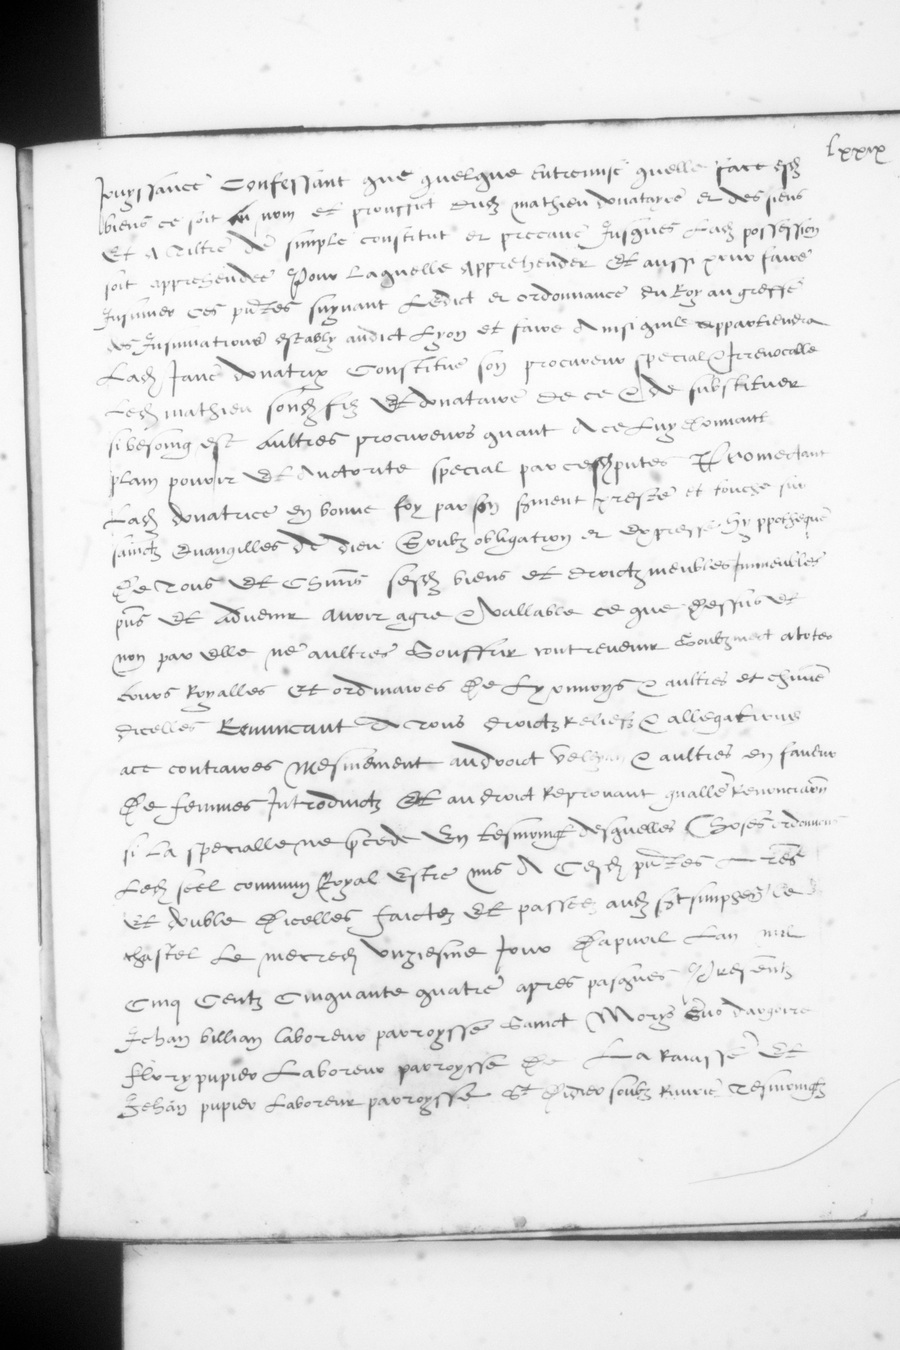 lxxix
Jouyssance Confessant que quelque entremise quelle face esd
biens ce soit au nom et prouffict dud mathieu donatayre et des siens
Et A tiltre de simple constitut et precaire Jusques Lad possession
soit apprehendee Pour Laquelle Apprehender Et aussi pour faire
Insinuer ces pntes suyvant Ledict et ordonnance du Roy au greffe
des Insinuations estably audict Lyon et faire Ainsi quil appartiendra
Lad Jane donatrix Constitue son procureur special & Irrevocable
Led mathieu sond filz Et donataire de ce & de substituer
si besoing est aultres procureurs quant A ce Luy donnant
plain pouvoir Et Auctorite special par cesd pntes Promectant
Lad donatrice en bonne foy par son serment preste et touche sur
sainctz Evangilles de dieu Soubz obligation et expresse hyppotheque
De Tous Et Chuns sesd biens et droictz meubles Immeubles
pns Et Advenir Avoir agre & vallable ce que dessus Et
non par elle ne aultres Souffrir contrevenir Soubzmect a totes
cours Royalles Et ordinaires De Lyonnoys & aultres et chune
dicelles Renuncant A Tous droictz Reliefz & allegations
ace contraires Mesmement au droict & aultres en faveur
De femmes Introduictz Et au droict Reprouvant gnalle Renonciaon
si La specialle ne precede En tesmoing desquelles Choses
Led seel commun Royal Estre mis A Cesd pntes Lres
Et double Dicelles faictes Et passees aud St simphorien le
chastel Le mecredi unziesme Jour Dapvril Lan mil
Cinq Centz Cinquante quatre apres pasques Presentz
Jehan billian laboreur parroysse Sainct
fleury pupier Laboreur parroysse De La Et
Jehan pupier Laboreur parroysse St Didier soubz Riverie Tesmoingtz